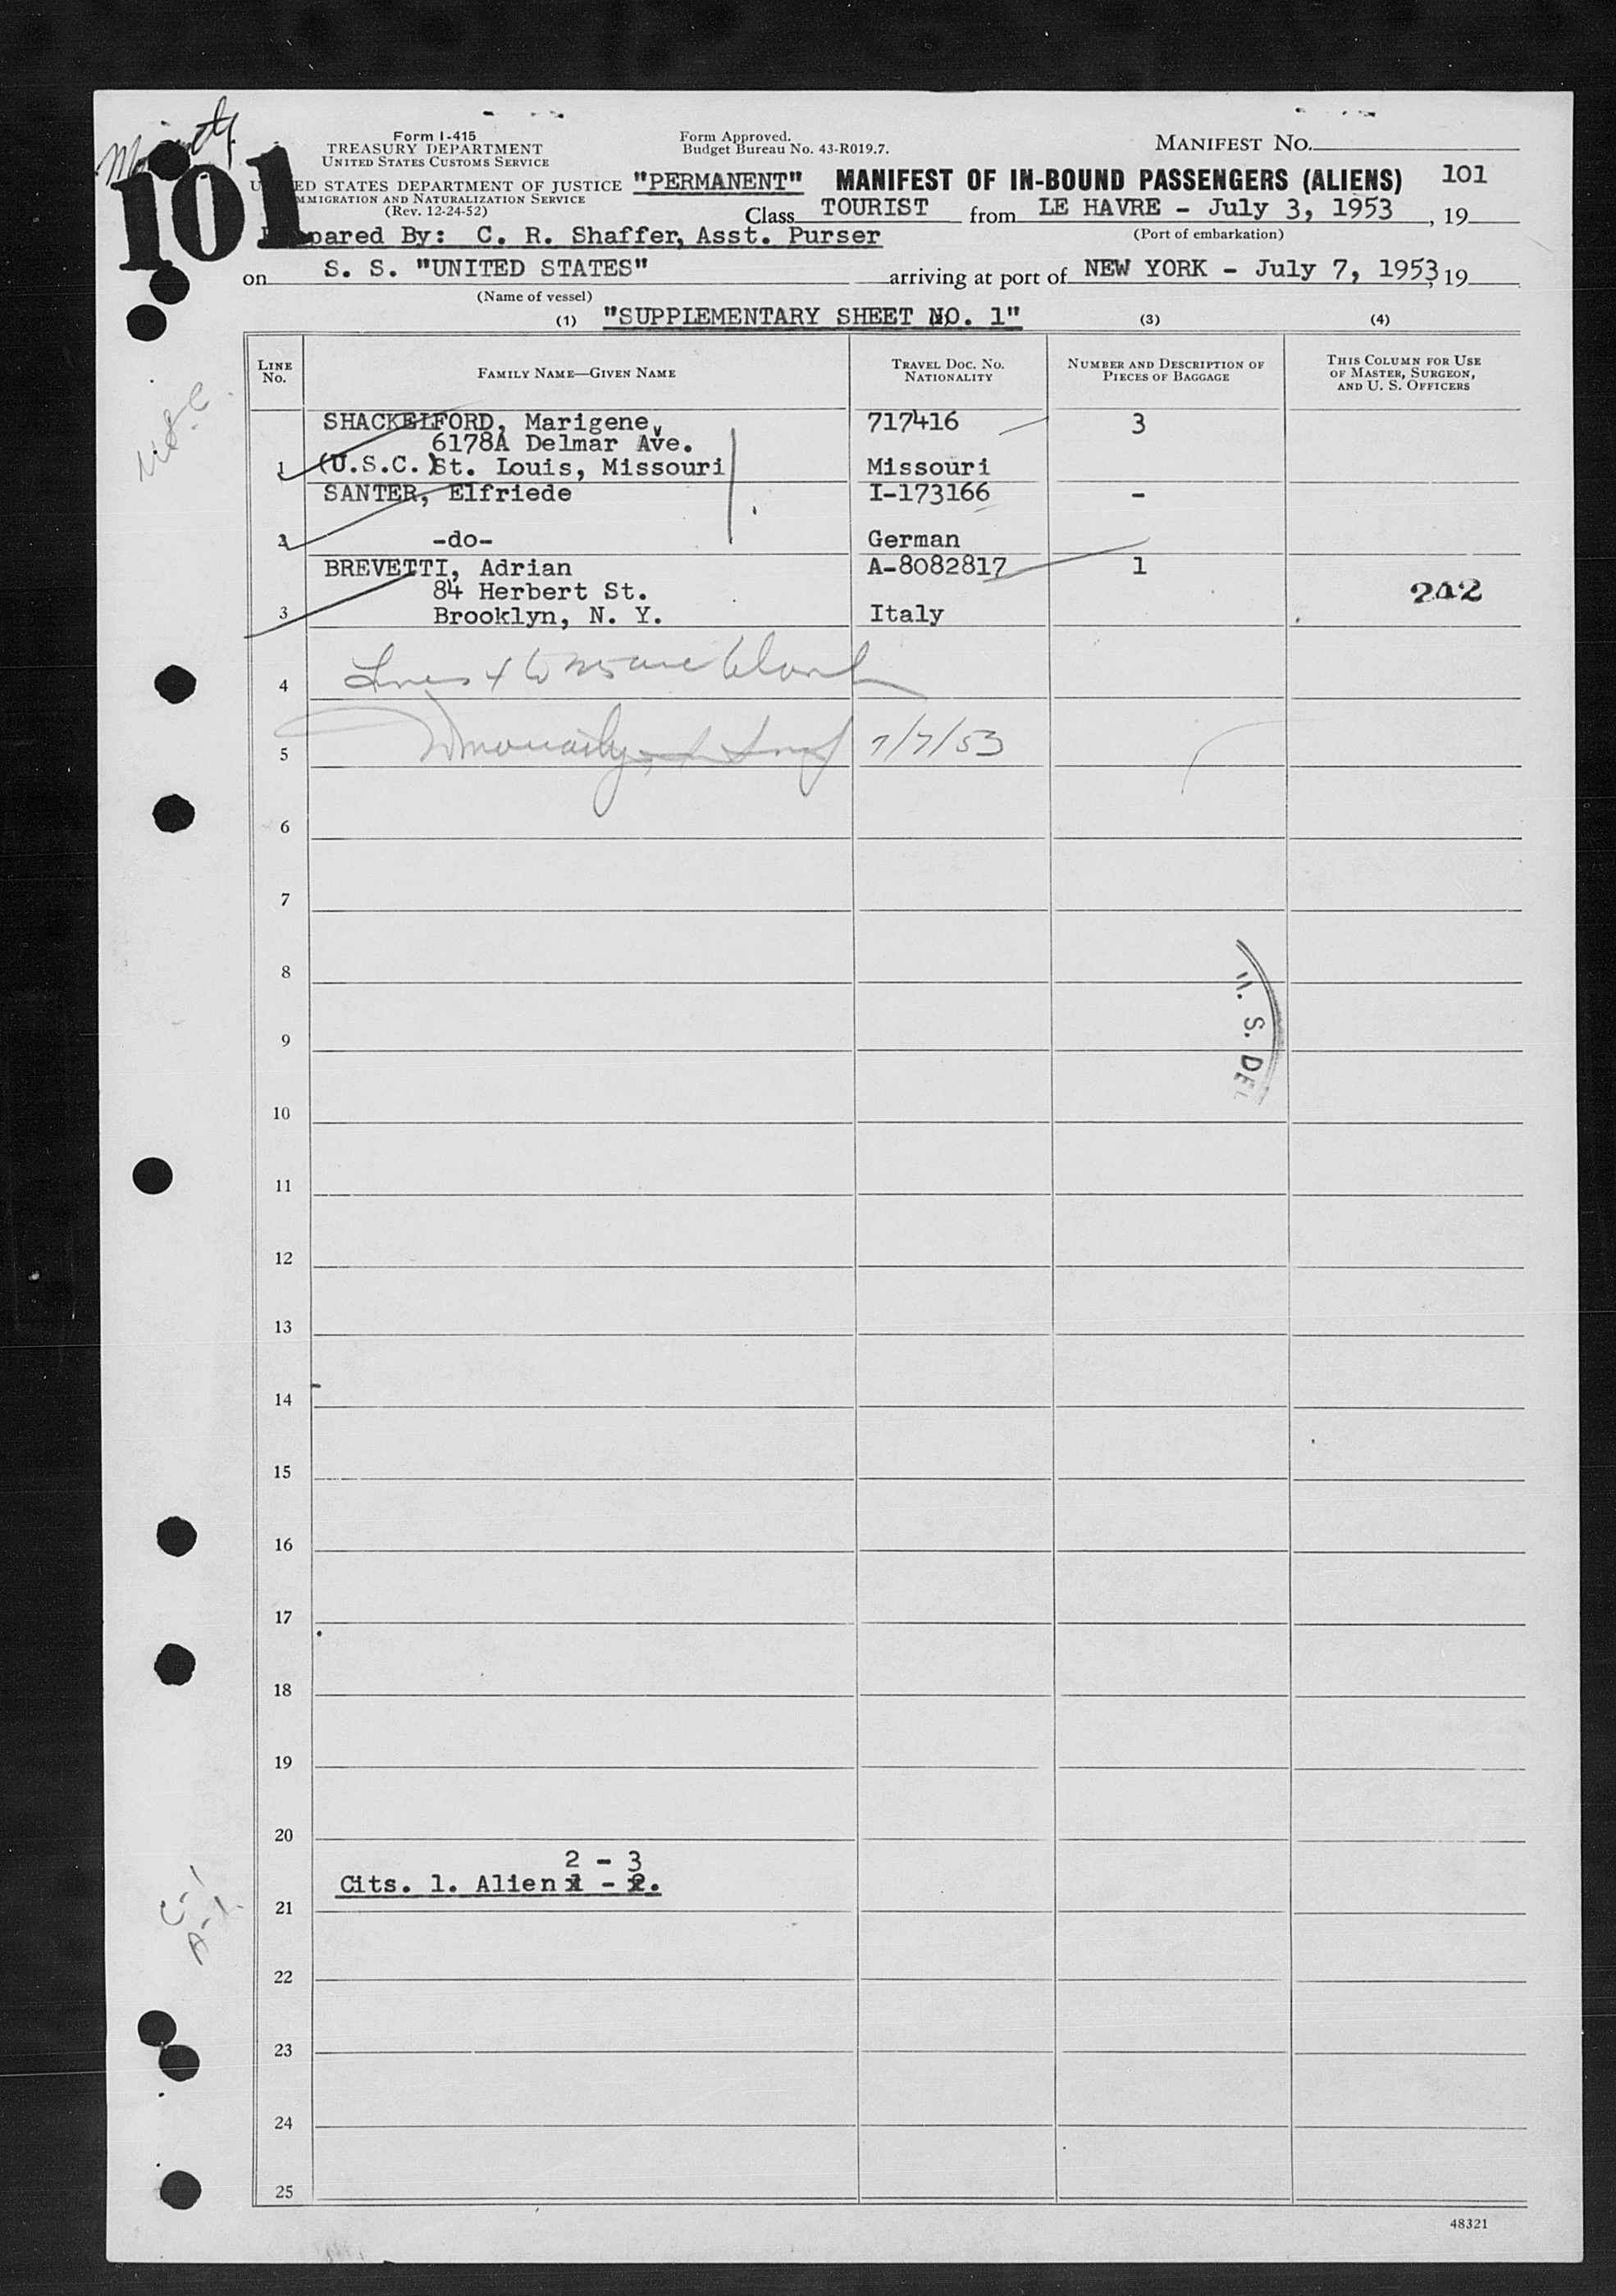 Form I-415
TREASURY DEPARTMENT
UNITED STATES CUSTOMS SERVICE
ED STATES DEPARTMENT OF JUSTICE
MMIGRATION AND NATURALIZATION SERVICE
(Rev. 12-24-52)
101
Form Approved.
Budget Bureau No. 43-R019.7.
MANIFEST NO.
"PERMANENT" MANIFEST OF IN-BOUND PASSENGERS (ALIENS) 101
Class TOURIST from LE HAVRE - July 3, 1953, 19
(Port of embarkation)
pared By: C. R. Shaffer, Asst. Purser
on S. S. "UNITED STATES" arriving at port of NEW YORK - July 7, 1953, 19
(Name of vessel)
(1) "SUPPLEMENTARY SHEET NO. 1" (3) (4)
LINE NO. FAMILY NAME—GIVEN NAME TRAVEL DOC. NO. NATIONALITY NUMBER AND DESCRIPTION OF PIECES OF BAGGAGE THIS COLUMN FOR USE OF MASTER, SURGEON, AND U. S. OFFICERS
SHACKELFORD, Marigene, 717416 3
6178A Delmar Ave.
1 (U.S.C.) St. Louis, Missouri Missouri
SANTER, Elfriede I-173166 -
2 -do- German
BREVETTI, Adrian A-8082817 1
84 Herbert St. 242
3 Brooklyn, N. Y. Italy
4 Lines 4 to 25 are blank
5 7/7/53
6
7
8
U. S. DE
9
10
11
12
13
14
15
16
17
18
19
20
2 - 3
Cits. 1. Alien 1 - 2.
21
C-1
A-1
22
23
24
25
48321